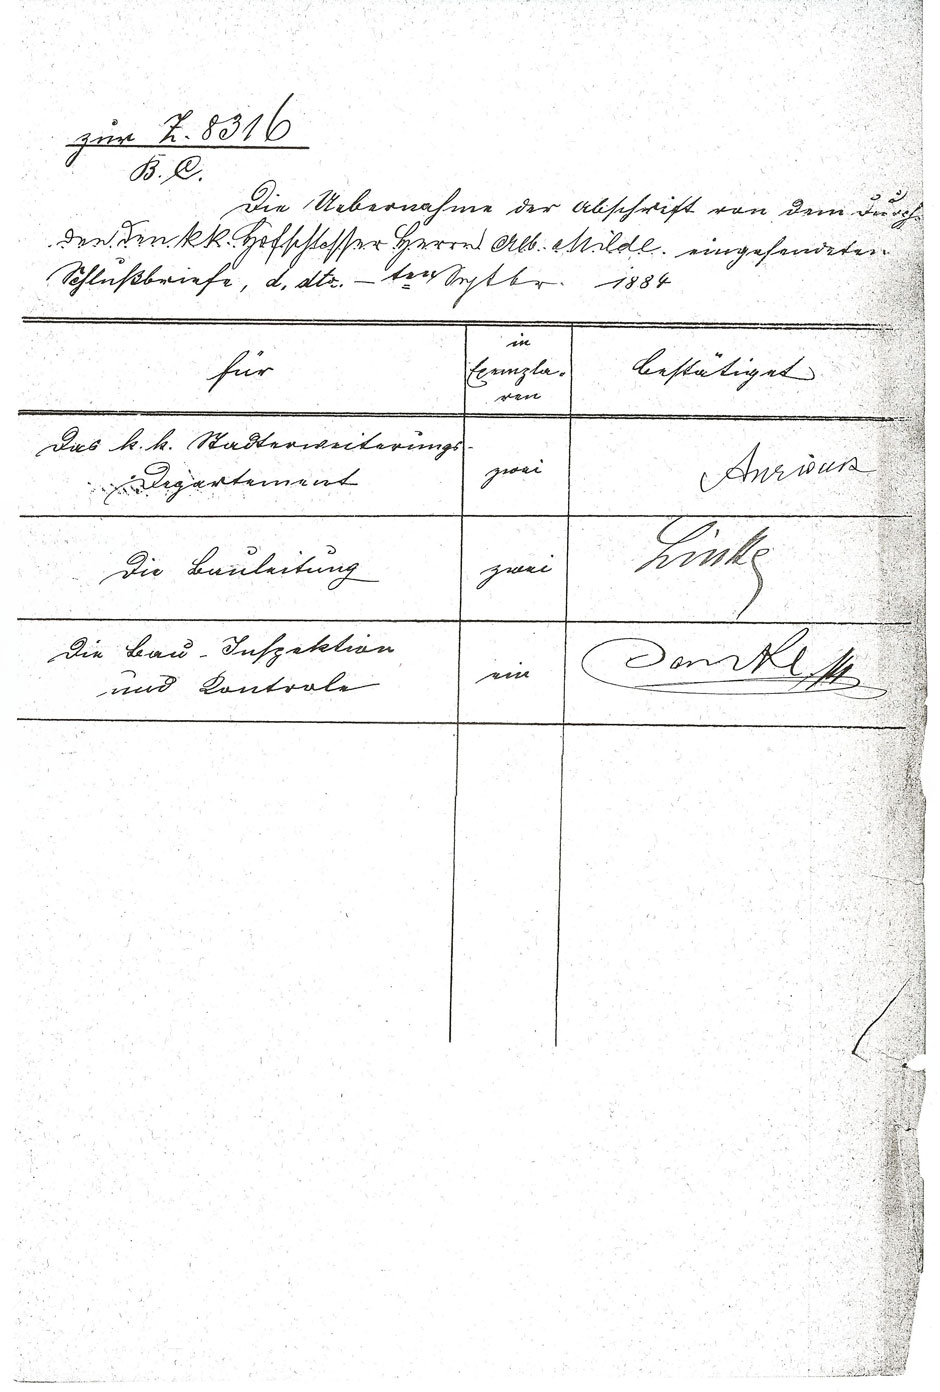 zur Z. 8316
B. C.
Die Uebernahme der Abschrift von dem durch
den den kk. Hofschlosser Herrn Alb. Milde eingesendeten
Schlußbriefe, d. dto. – ten Septbr. 1884
für
in
Exempla-
ren
bestätiget
Das k. k. Stadterweiterungs-
Departement
zwei
Die Bauleitung
zwei
Linke
Die Bau-Inspektion
und Kontrole
ein